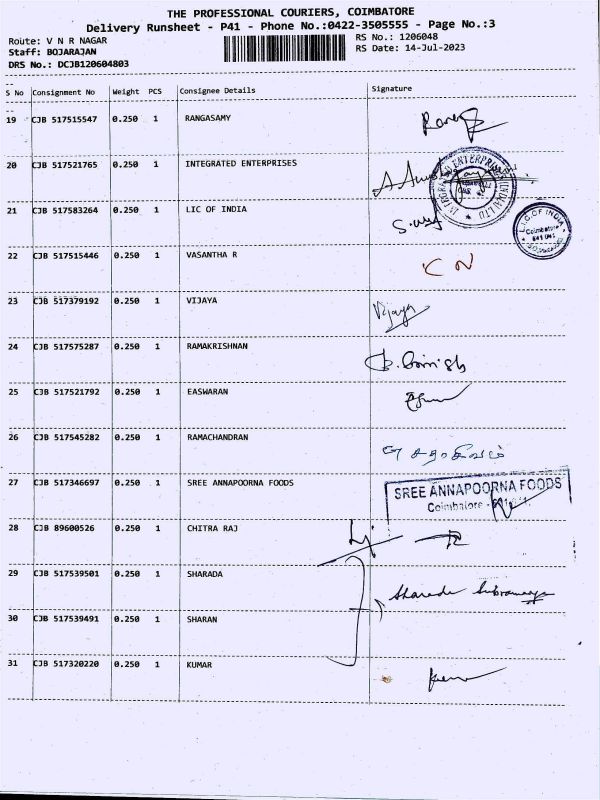 THE PROFESSIONAL COURIERS, COIMBATORE
Delivery Runsheet - P41 - Phone No.:0422-3505555 - Page No.:3
Route: V N R NAGAR
Staff: BOJARAJAN
DRS No.: DCJB120604803
RS No.: 1206048
RS Date: 14-Jul-2023
S No Consignment No Weight PCS Consignee Details Signature
19 CJB 517515547 0.250 1 RANGASAMY
20 CJB 517521765 0.250 1 INTEGRATED ENTERPRISES
21 CJB 517583264 0.250 1 LIC OF INDIA
L.I.C OF INDIA
Coimbatore
22 CJB 517515446 0.250 1 VASANTHA R
23 CJB 517379192 0.250 1 VIJAYA Vijaya
24 CJB 517575287 0.250 1 RAMAKRISHNAN
25 CJB 517521792 0.250 1 EASWARAN
26 CJB 517545282 0.250 1 RAMACHANDRAN
27 CJB 517346697 0.250 1 SREE ANNAPOORNA FOODS
SREE ANNAPOORNA FOODS
Coimbatore
28 CJB 89600526 0.250 1 CHITRA RAJ
29 CJB 517539501 0.250 1 SHARADA
30 CJB 517539491 0.250 1 SHARAN
31 CJB 517320220 0.250 1 KUMAR